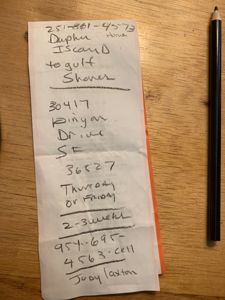 Dauphn
Island
to gulf
Shores
30417
Pinyon
Drive
SF
36527
Thursday
or Friday
2-3 weeks
954-695-
4563-cell
Judy Laxton